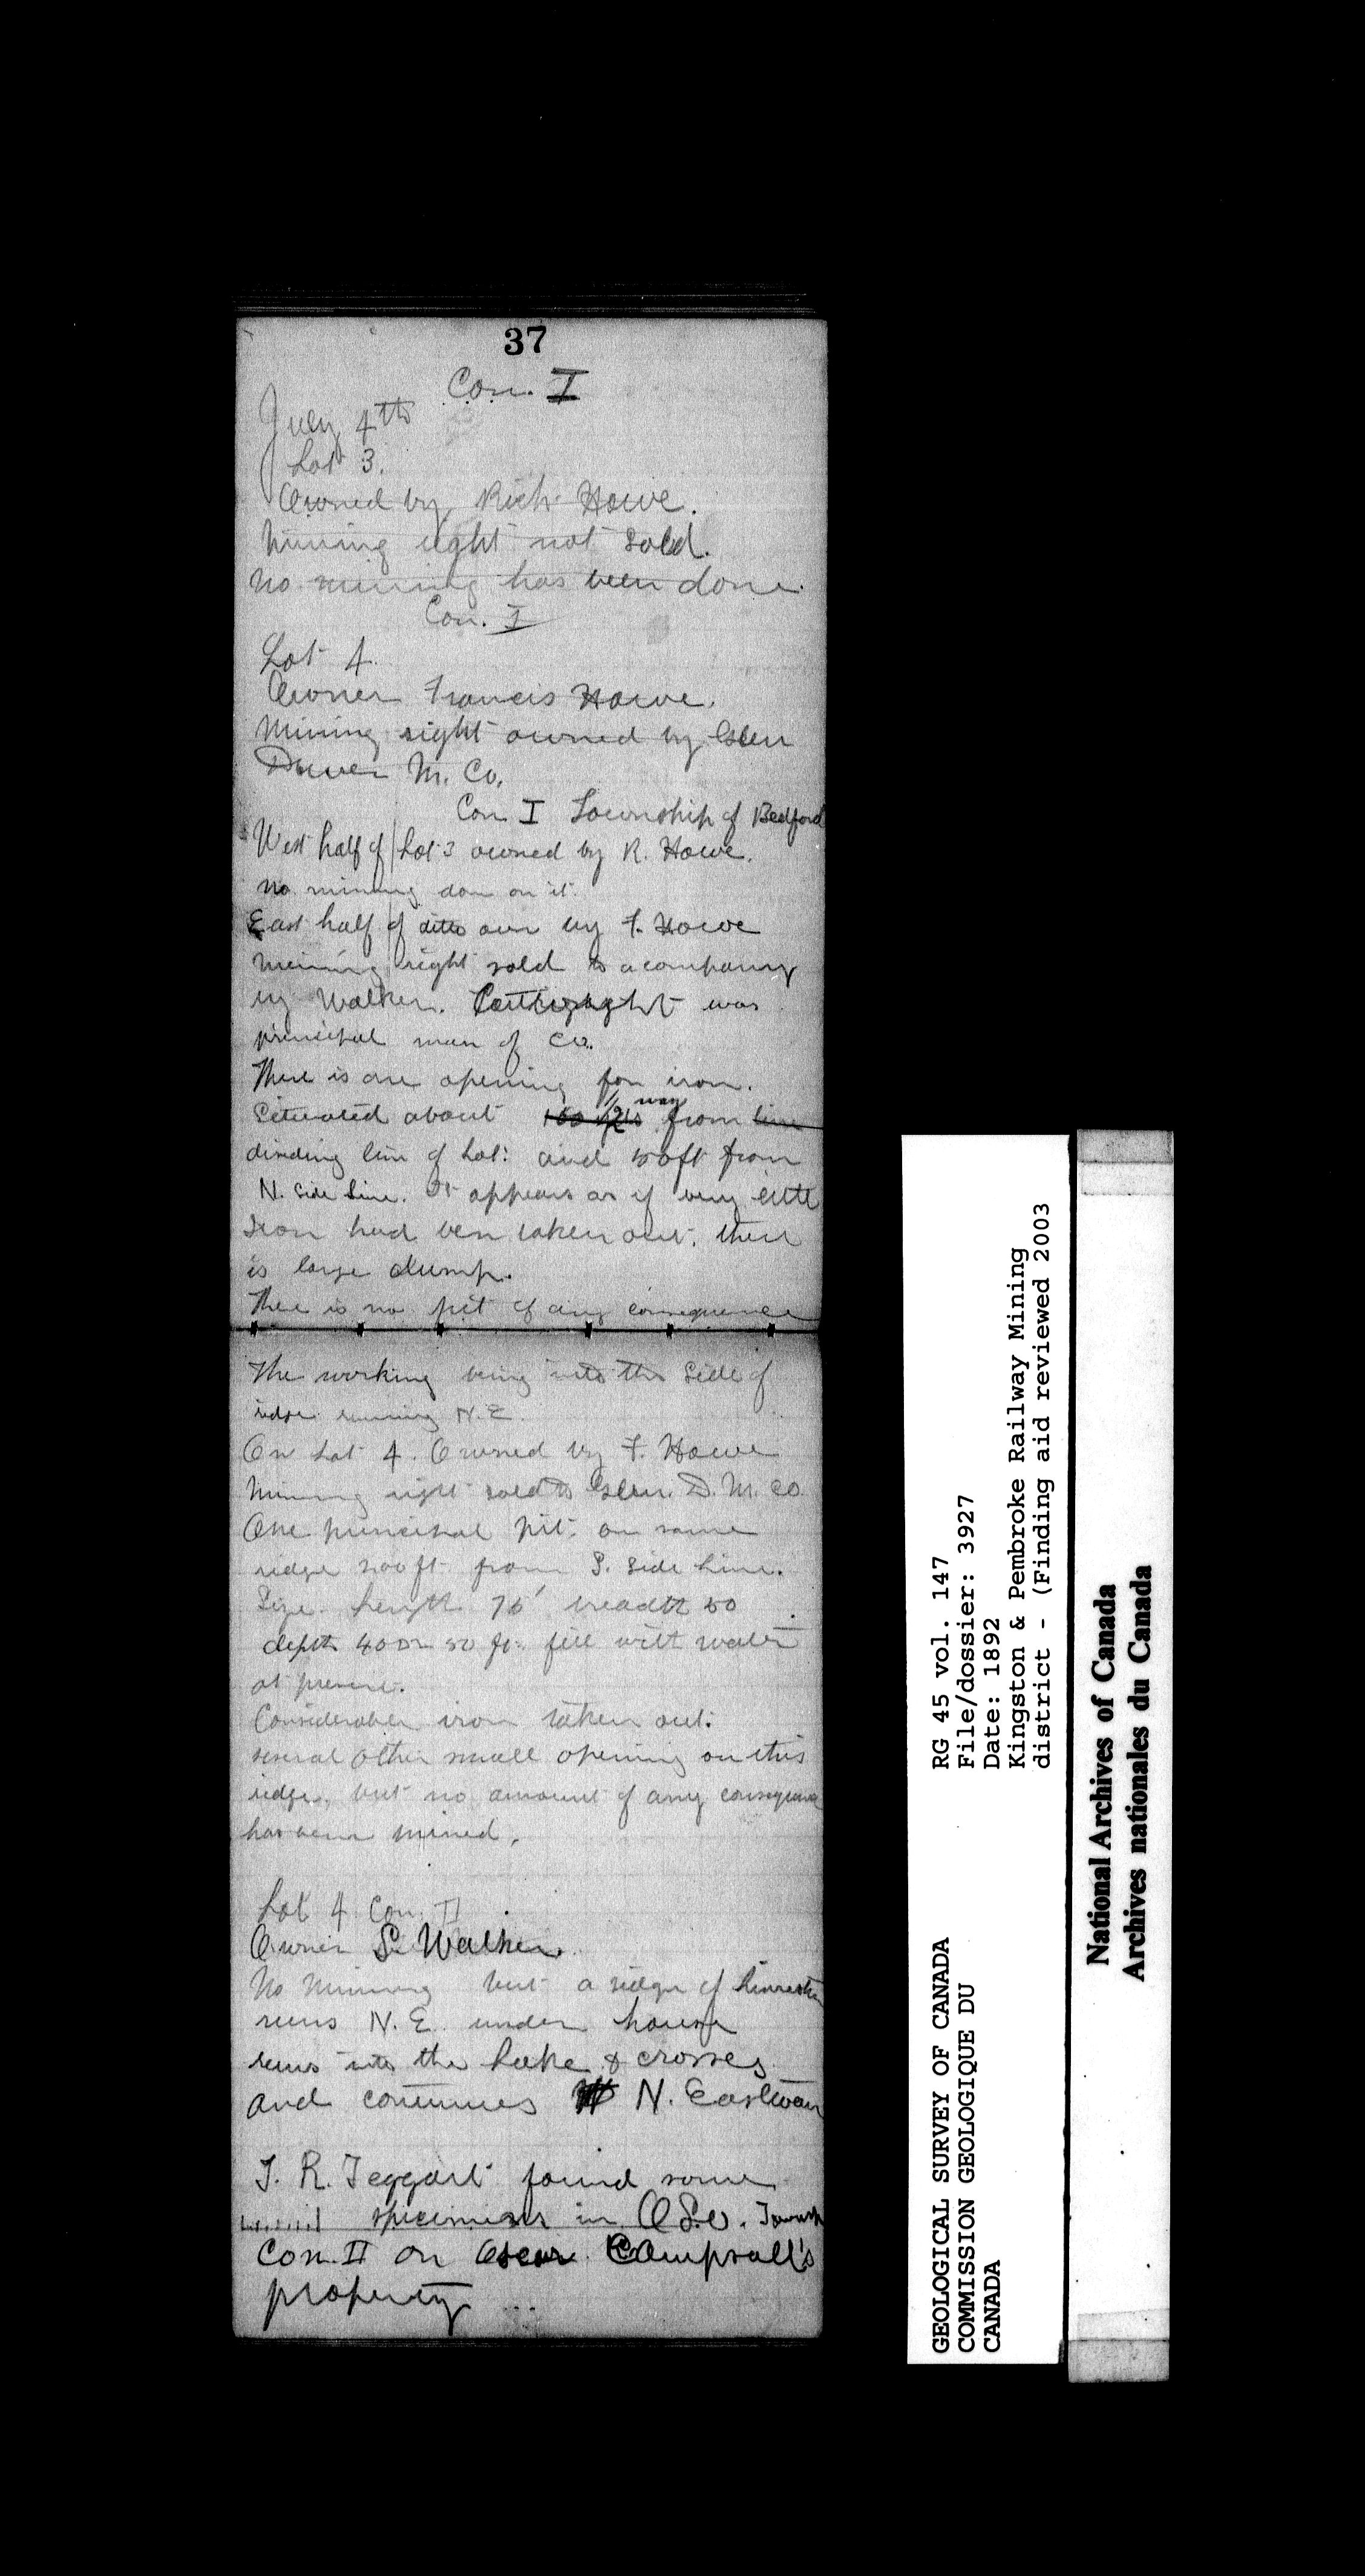 37
Con. I
July 4th
Lot 3.
Owned by Rich. Howe.
Mining right not sold.
No mining has been done.
Con. I
Lot 4.
Owner Francis Howe.
Mining right owned by Glen
Dower M. Co.
Con I Township of Bedford
West half of Lot 3 owned by R. Howe.
no mining don on it.
East half of ditto own by F. Howe
Mining right sold to a company
by Walker. Cartwright was
principal man of Co.
There is one opening for iron.
Situated about 1/2 way from
dividing line of Lot: and 50 ft from
N. Side line. It appears as if very little
Iron had ben taken out. there
is large dump.
There is no pit of any consequence
The working being into the Side of
ridge running N.E.
On Lot 4. Owned by F. Howe
Mining right sold to Glen. D. M. Co.
One principal pit. on same
ridge 200 ft from S. Side line.
Size. Length 75' breadth 50
depth 40 or 50 ft. fill with water
at present.
Considerable iron taken out.
several other small opening on this
ridge. but no amount of any consequence
has been mined.
Lot 4 Con. II
Owner S. Walker.
No Mining but a ridge of limestone
runs N.E. under house
runs into the Lake & crosses
and continues N. Eastwar
J. R. Teggart found some
specimens in Oso. Townsh
Con. II on Oscar Campsall's
property
RG 45 vol. 147
File/dossier: 3927
Date: 1892
Kingston & Pembroke Railway Mining
district - (Finding aid reviewed 2003
GEOLOGICAL SURVEY OF CANADA
COMMISSION GEOLOGIQUE DU
CANADA
National Archives of Canada
Archives nationales du Canada